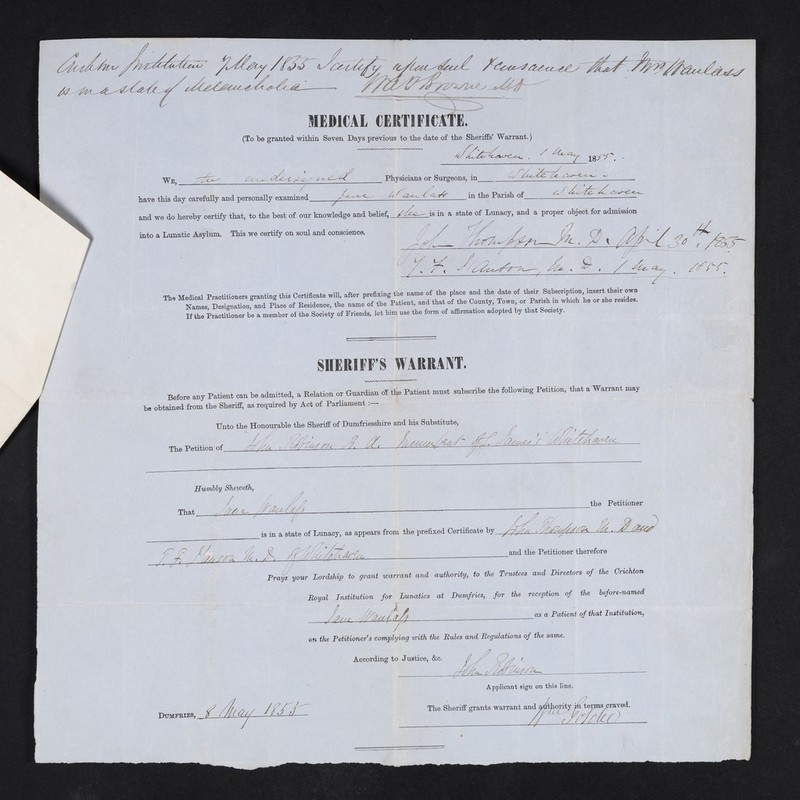 Institution 7 May 1855 I certify upon soul & conscience that Mrs Wanlass
is in a state of Melancholia Browne MD
MEDICAL CERTIFICATE.
(To be granted within Seven Days previous to the date of the Sheriffs' Warrant.)
Whitehaven. 1 May 1855.
We, the undersigned Physicians or Surgeons, in Whitehaven
have this day carefully and personally examined Jane Wanlass in the Parish of Whitehaven
and we do hereby certify that, to the best of our knowledge and belief, she is in a state of Lunacy, and a proper object for admission
into a Lunatic Asylum. This we certify on soul and conscience.
John Thompson M. D. April 30th. 1855
M. D. 1 May. 1855.
The Medical Practitioners granting this Certificate will, after prefixing the name of the place and the date of their Subscription, insert their own
Names, Designation, and Place of Residence, the name of the Patient, and that of the County, Town, or Parish in which he or she resides.
If the Practitioner be a member of the Society of Friends, let him use the form of affirmation adopted by that Society.
SHERIFF'S WARRANT.
Before any Patient can be admitted, a Relation or Guardian of the Patient must subscribe the following Petition, that a Warrant may
be obtained from the Sheriff, as required by Act of Parliament :—
Unto the Honourable the Sheriff of Dumfriesshire and his Substitute,
The Petition of John Robinson Incumbent of St James's Whitehaven
Humbly Sheweth,
That Jane Wanlass the Petitioner
is in a state of Lunacy, as appears from the prefixed Certificate by John Thompson M. D and
M. D. of Whitehaven and the Petitioner therefore
Prays your Lordship to grant warrant and authority, to the Trustees and Directors of the Crichton
Royal Institution for Lunatics at Dumfries, for the reception of the before-named
Jane Wanlass as a Patient of that Institution,
on the Petitioner's complying with the Rules and Regulations of the same.
According to Justice, &c.
John Robinson
Applicant sign on this line.
The Sheriff grants warrant and authority in terms craved.
Dumfries, 8 May 1855